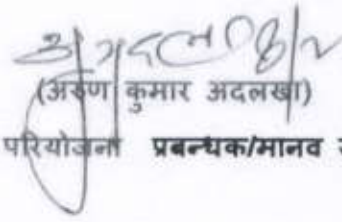 (अरुण कुमार अदलखा)
परियोजना प्रबन्धक/मानव